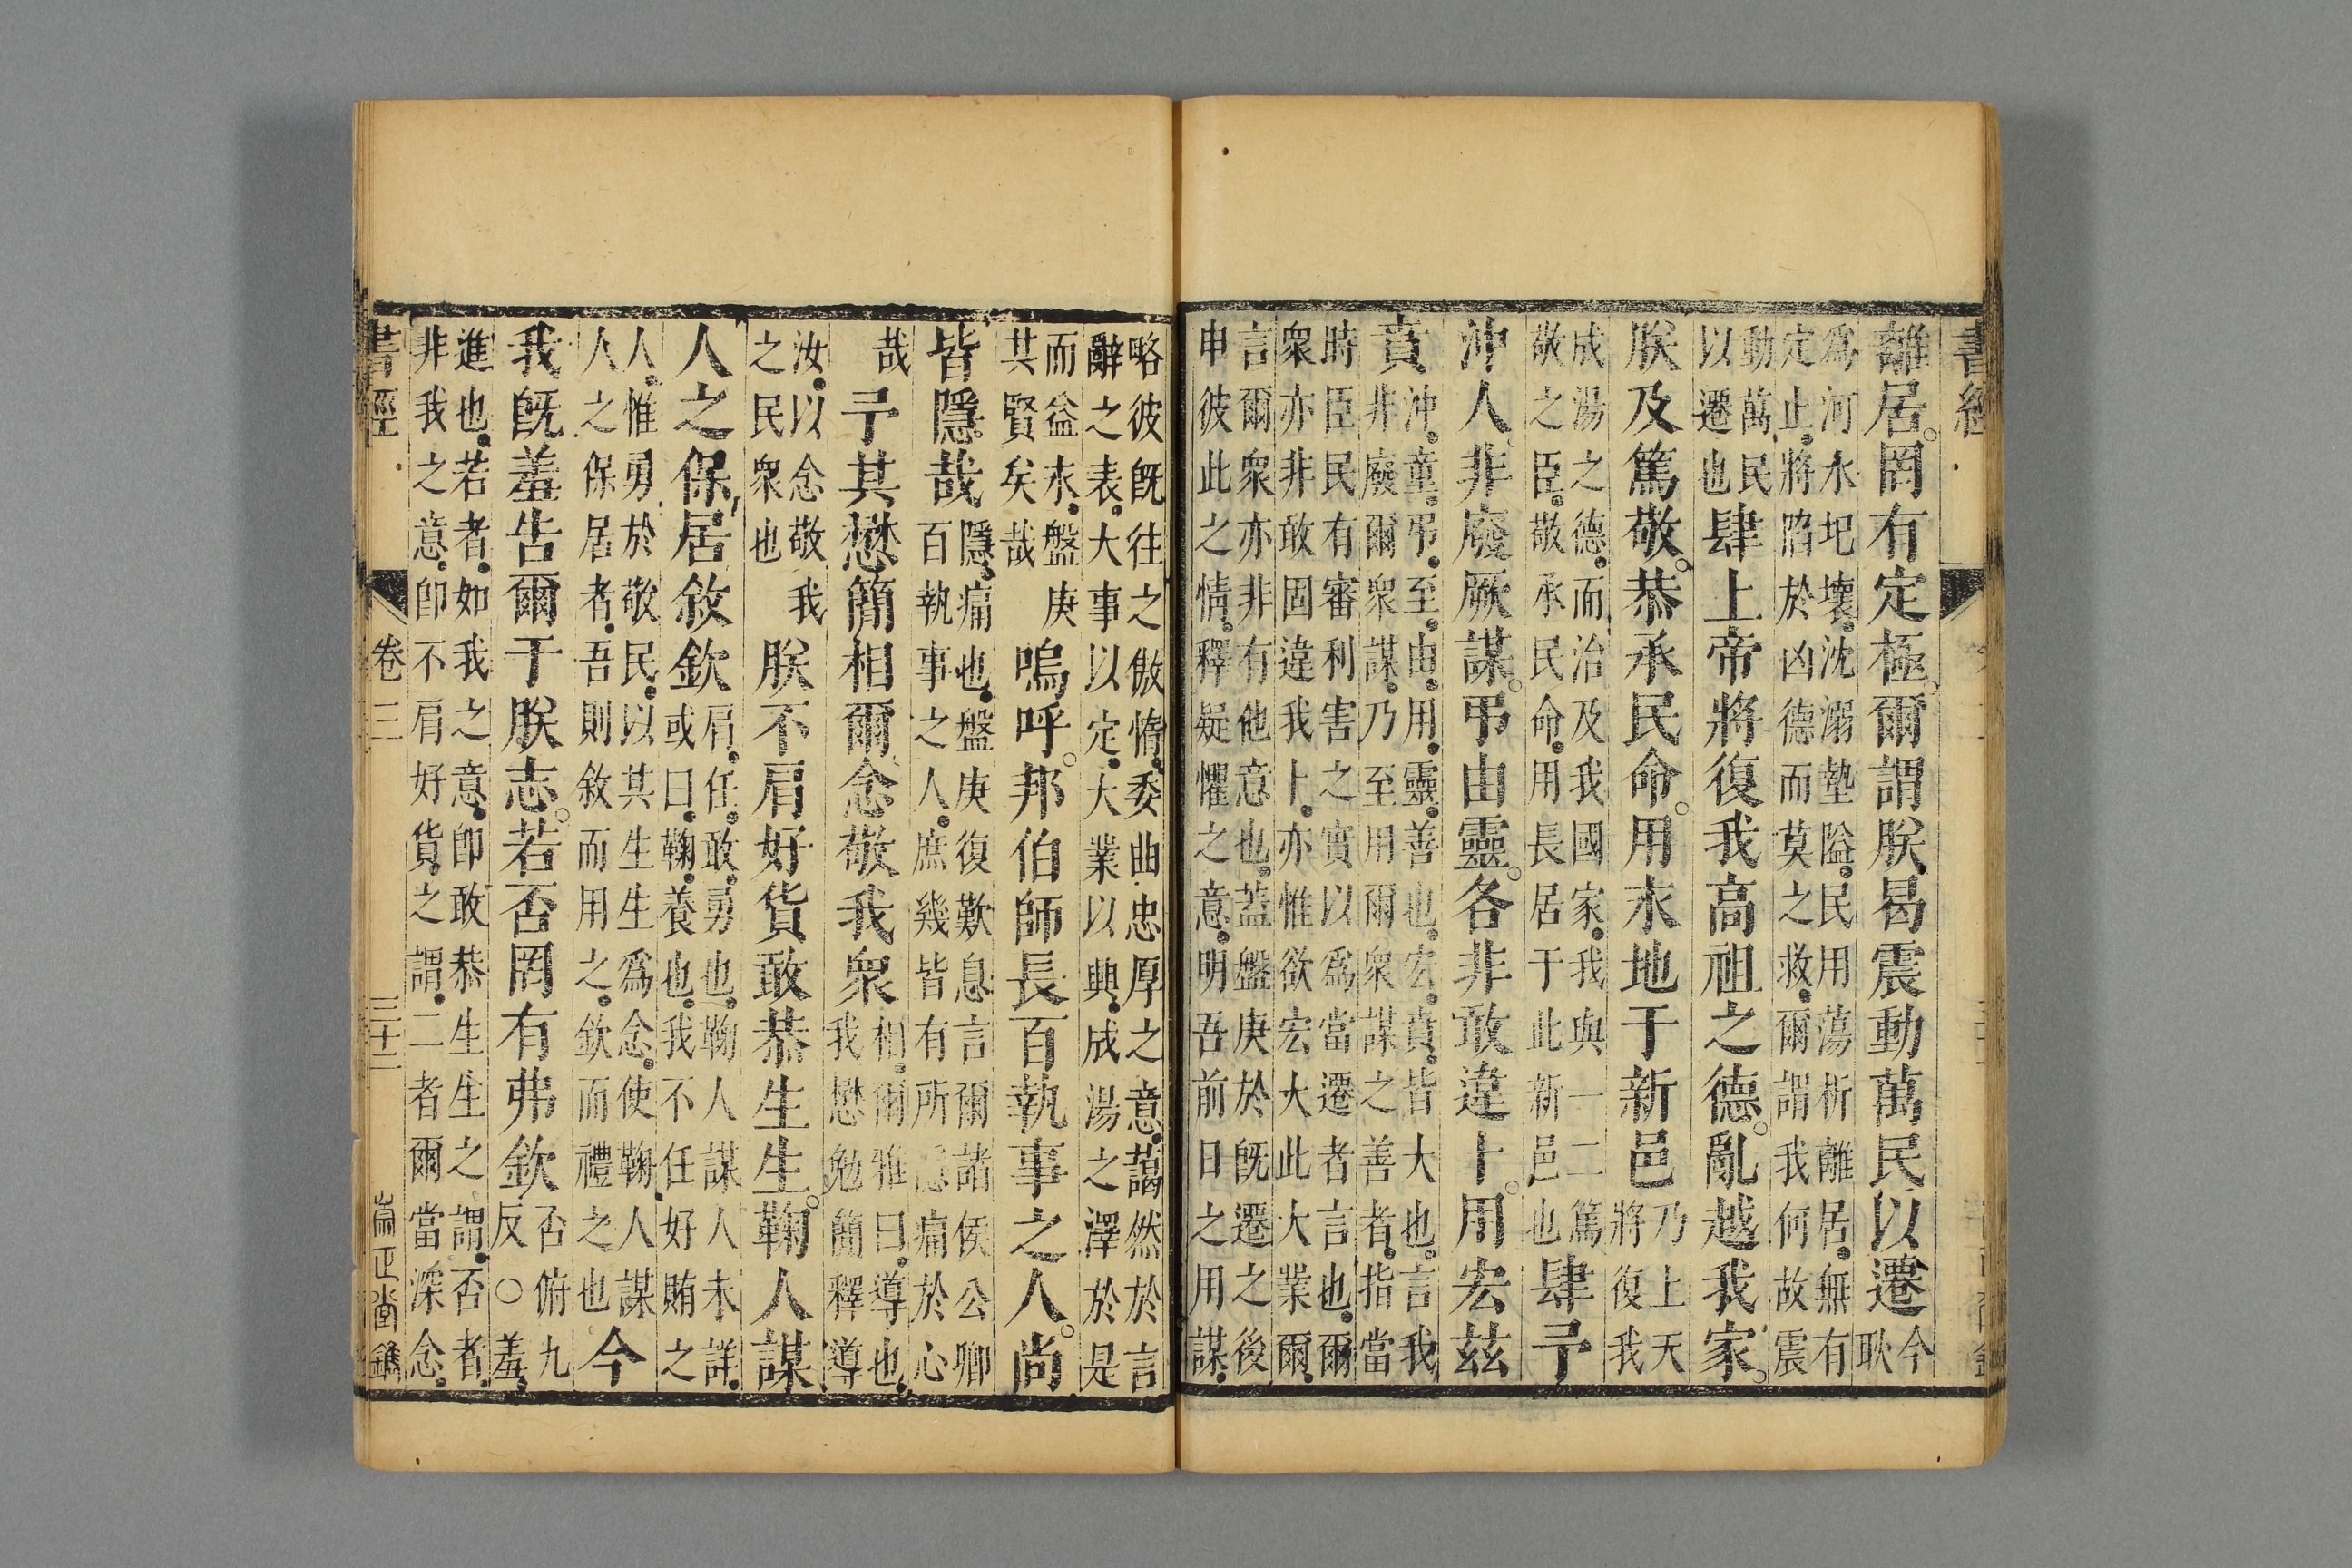 書經
離居罔有定極爾謂朕曷震動萬民以遷今耿
爲河水圯壞沈溺墊隘民用蕩析離居無有
定止將陷於凶德而莫之救爾謂我何故震
動萬民
以遷也
肆上帝將復我高祖之德亂越我家
朕及篤敬恭承民命用永地于新邑乃上天將復我
成湯之德而治及我國家我與一二篤
敬之臣敬承民命用長居于此新邑也
肆予
沖人非廢厥謀弔由靈各非敢違卜用宏茲
賁
沖童弔至由用靈善也宏賁皆大也言我
非廢爾衆謀乃至用爾衆謀之善者指當
時臣民有審利害之實以爲當遷者言也爾
衆亦非敢固違我卜亦惟欲宏大此大業爾
言爾衆亦非有他意也蓋盤庚於旣遷之後
申彼此之情釋疑懼之意明吾前日之用謀
略彼旣往之傲惰委曲忠厚之意藹然於言
辭之表大事以定大業以興成湯之澤於是
而益永盤庚
其賢矣哉
嗚呼邦伯師長百執事之人尚
皆隱哉
隱痛也盤庚復歎息言爾諸侯公卿
百執事之人庶幾皆有所隱痛於心
哉
予其懋簡相爾念敬我衆
相爾雅曰導也
我懋勉簡釋導
汝以念敬我
之民衆也
朕不肩好貨敢恭生生鞠人謀
人之保居敘欽
肩任敢勇也鞠人謀人未詳
或曰鞠養也我不任好賄之
人惟勇於敬民以其生生爲念使鞠人謀
人之保居者吾則敘而用之欽而禮之也
今
我旣羞告爾于朕志若否罔有弗欽
否俯九
反○羞
進也若者如我之意卽敢恭生生之謂否者
非我之意卽不肩好貨之謂二者爾當深念
書經
卷三
三十二
崇正堂鐫